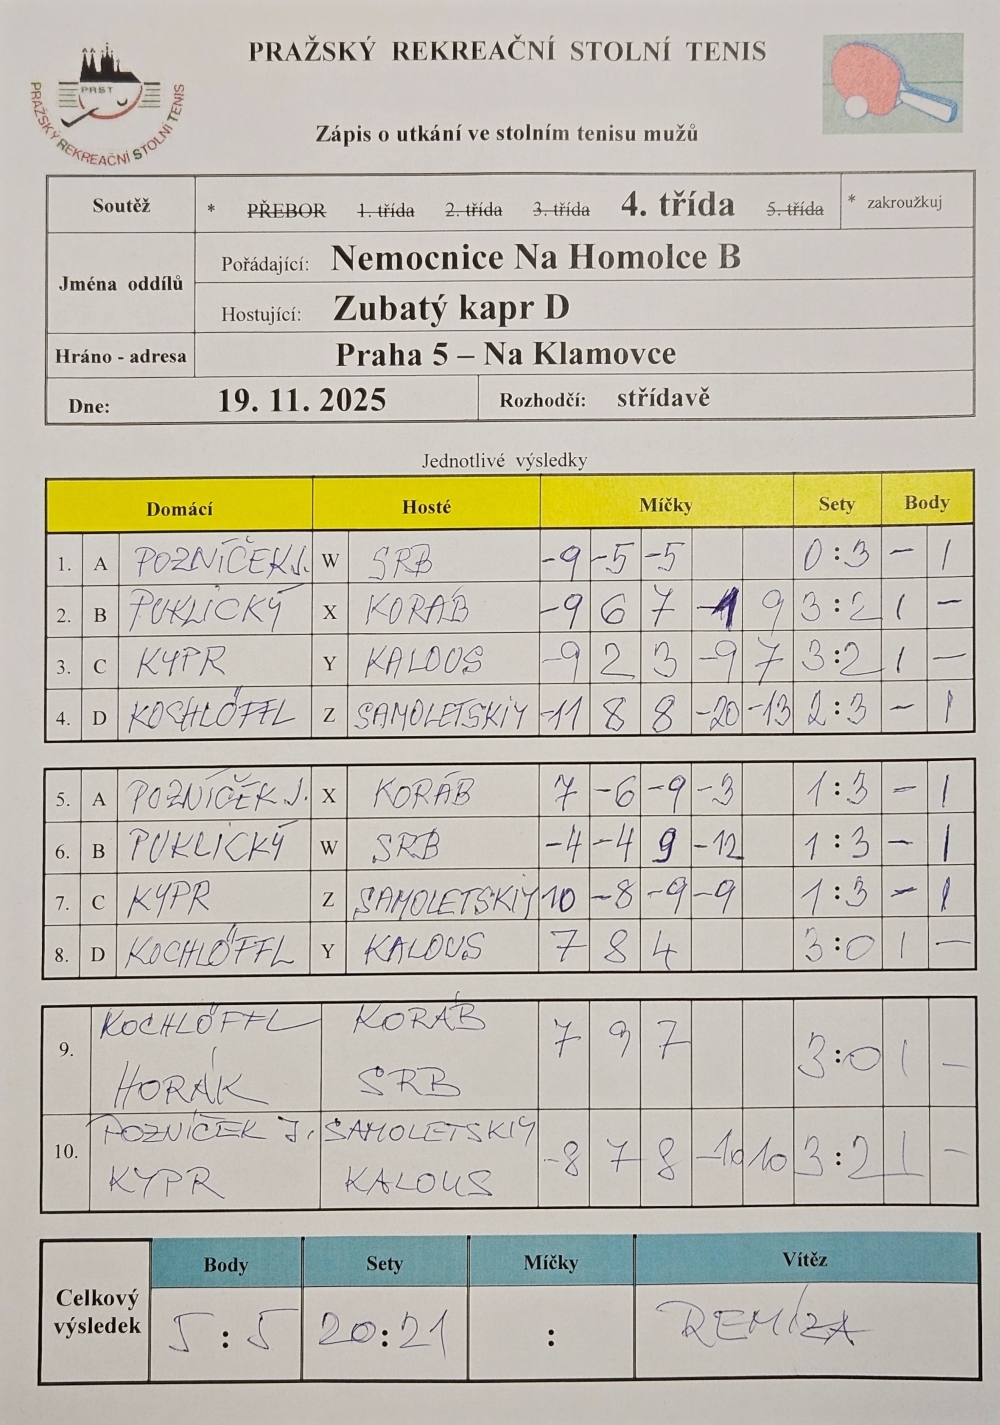 PRAŽSKÝ REKREAČNÍ STOLNÍ TENIS
PRST
PRAŽSKÝ REKREAČNÍ STOLNÍ TENIS
Zápis o utkání ve stolním tenisu mužů
Soutěž * PŘEBOR 1. třída 2. třída 3. třída 4. třída 5. třída * zakroužkuj
Jména oddílů
Pořádající: Nemocnice Na Homolce B
Hostující: Zubatý kapr D
Hráno - adresa Praha 5 – Na Klamovce
Dne: 19. 11. 2025 Rozhodčí: střídavě
Jednotlivé výsledky
Domácí Hosté Míčky Sety Body
1. A POZNÍČEK J. W SRB -9 -5 -5 0:3 - 1
2. B PUKLICKÝ X KORÁB -9 6 7 -9 3:2 1 -
3. C KYPR Y KALOUS -9 2 3 -9 7 3:2 1 -
4. D KOCHLÖFFL Z SAMOLETSKIY -11 8 8 -20 -13 2:3 - 1
5. A POZNÍČEK J. X KORÁB 7 -6 -9 -3 1:3 - 1
6. B PUKLICKÝ W SRB -4 -4 9 -12 1:3 - 1
7. C KYPR Z SAMOLETSKIY 10 -8 -9 -9 1:3 - 1
8. D KOCHLÖFFL Y KALOUS 7 8 4 3:0 1 -
9. KOCHLÖFFL KORÁB 7 9 7 3:0 1 -
HORÁK SRB
10. POZNÍČEK J. SAMOLETSKIY -8 7 8 -10 10 3:2 1 -
KYPR KALOUS
Celkový výsledek
Body Sety Míčky Vítěz
5:5 20:21 : REMÍZA